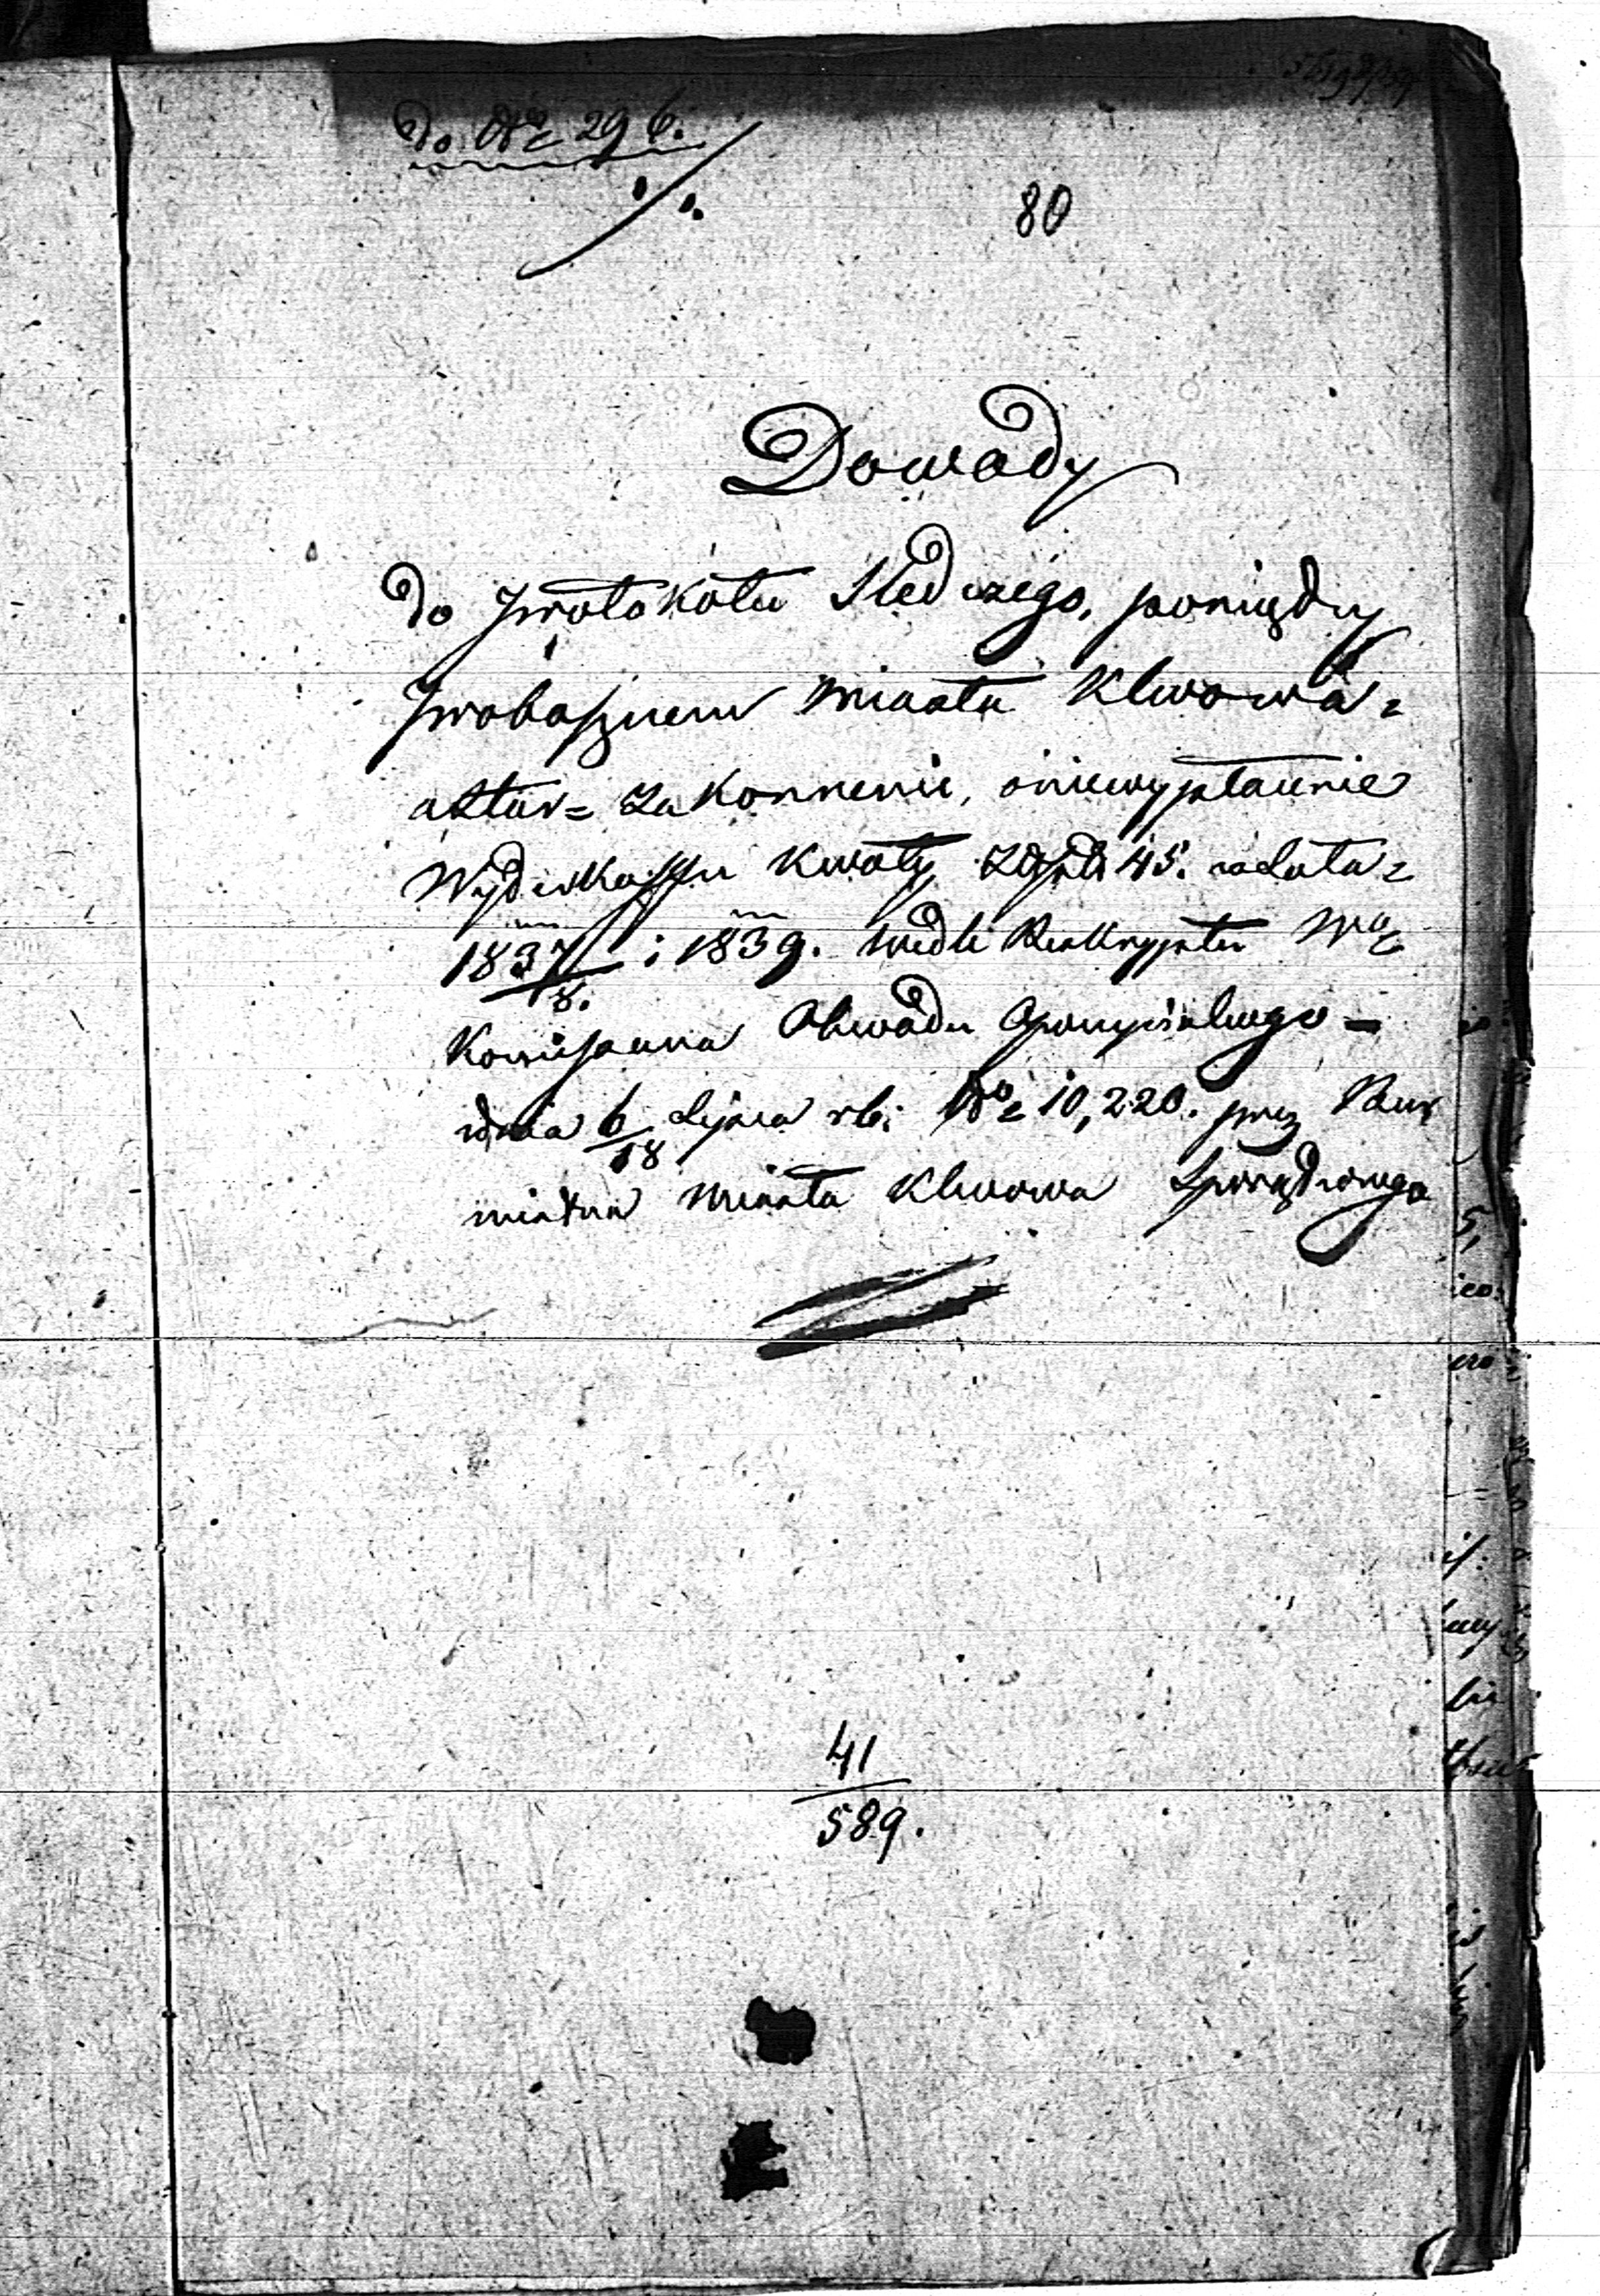 do Nro 296.
80
Dowody
do protokółu śledczego, pomiędzy
Proboszczem miasta Klwowa
a Star: Zakonnemi, o niewypłacenie
Wyderkaffu kwoty Złp. 45. za lata
1837/8. i 1839. wedle Reskryptu W°
Kommissarza Obwodu Opoczyńskiego
z dnia 6/18 Lipca rb: Nro 10,220. przez Bur
mistrza miasta Klwowa sporządzonego
41
589.